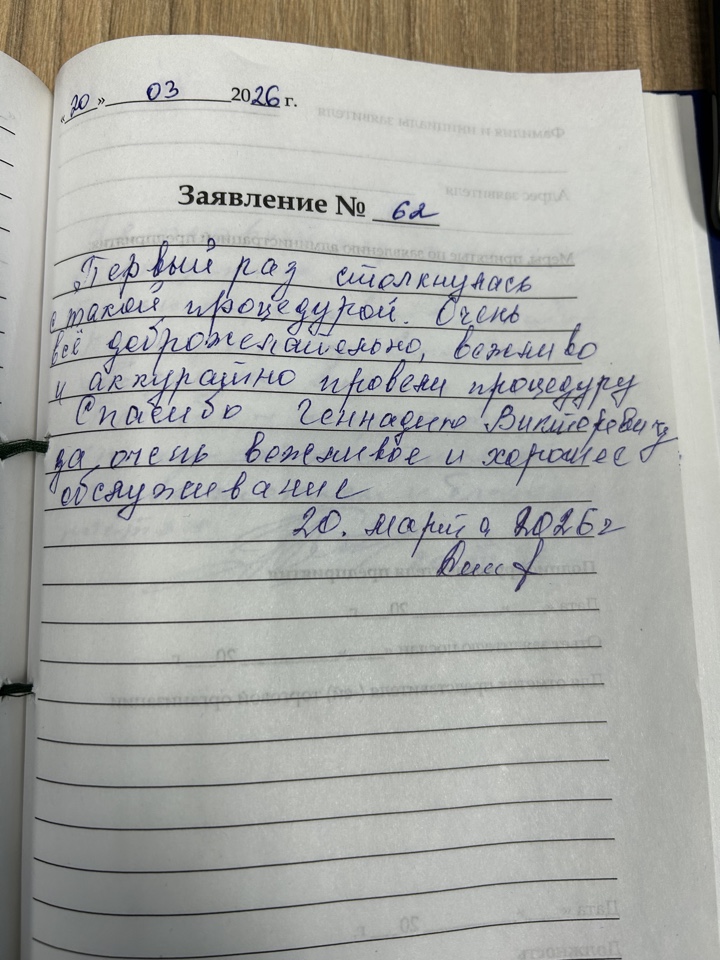 «20» 03 2026 г.
Заявление № 62
Первый раз столкнулась
с такой процедурой. Очень
всё доброжелательно, вежливо
и аккуратно провели процедуру
Спасибо Геннадию Викторовичу
за очень вежливое и хорошее
обслуживание
20. марта 2026г